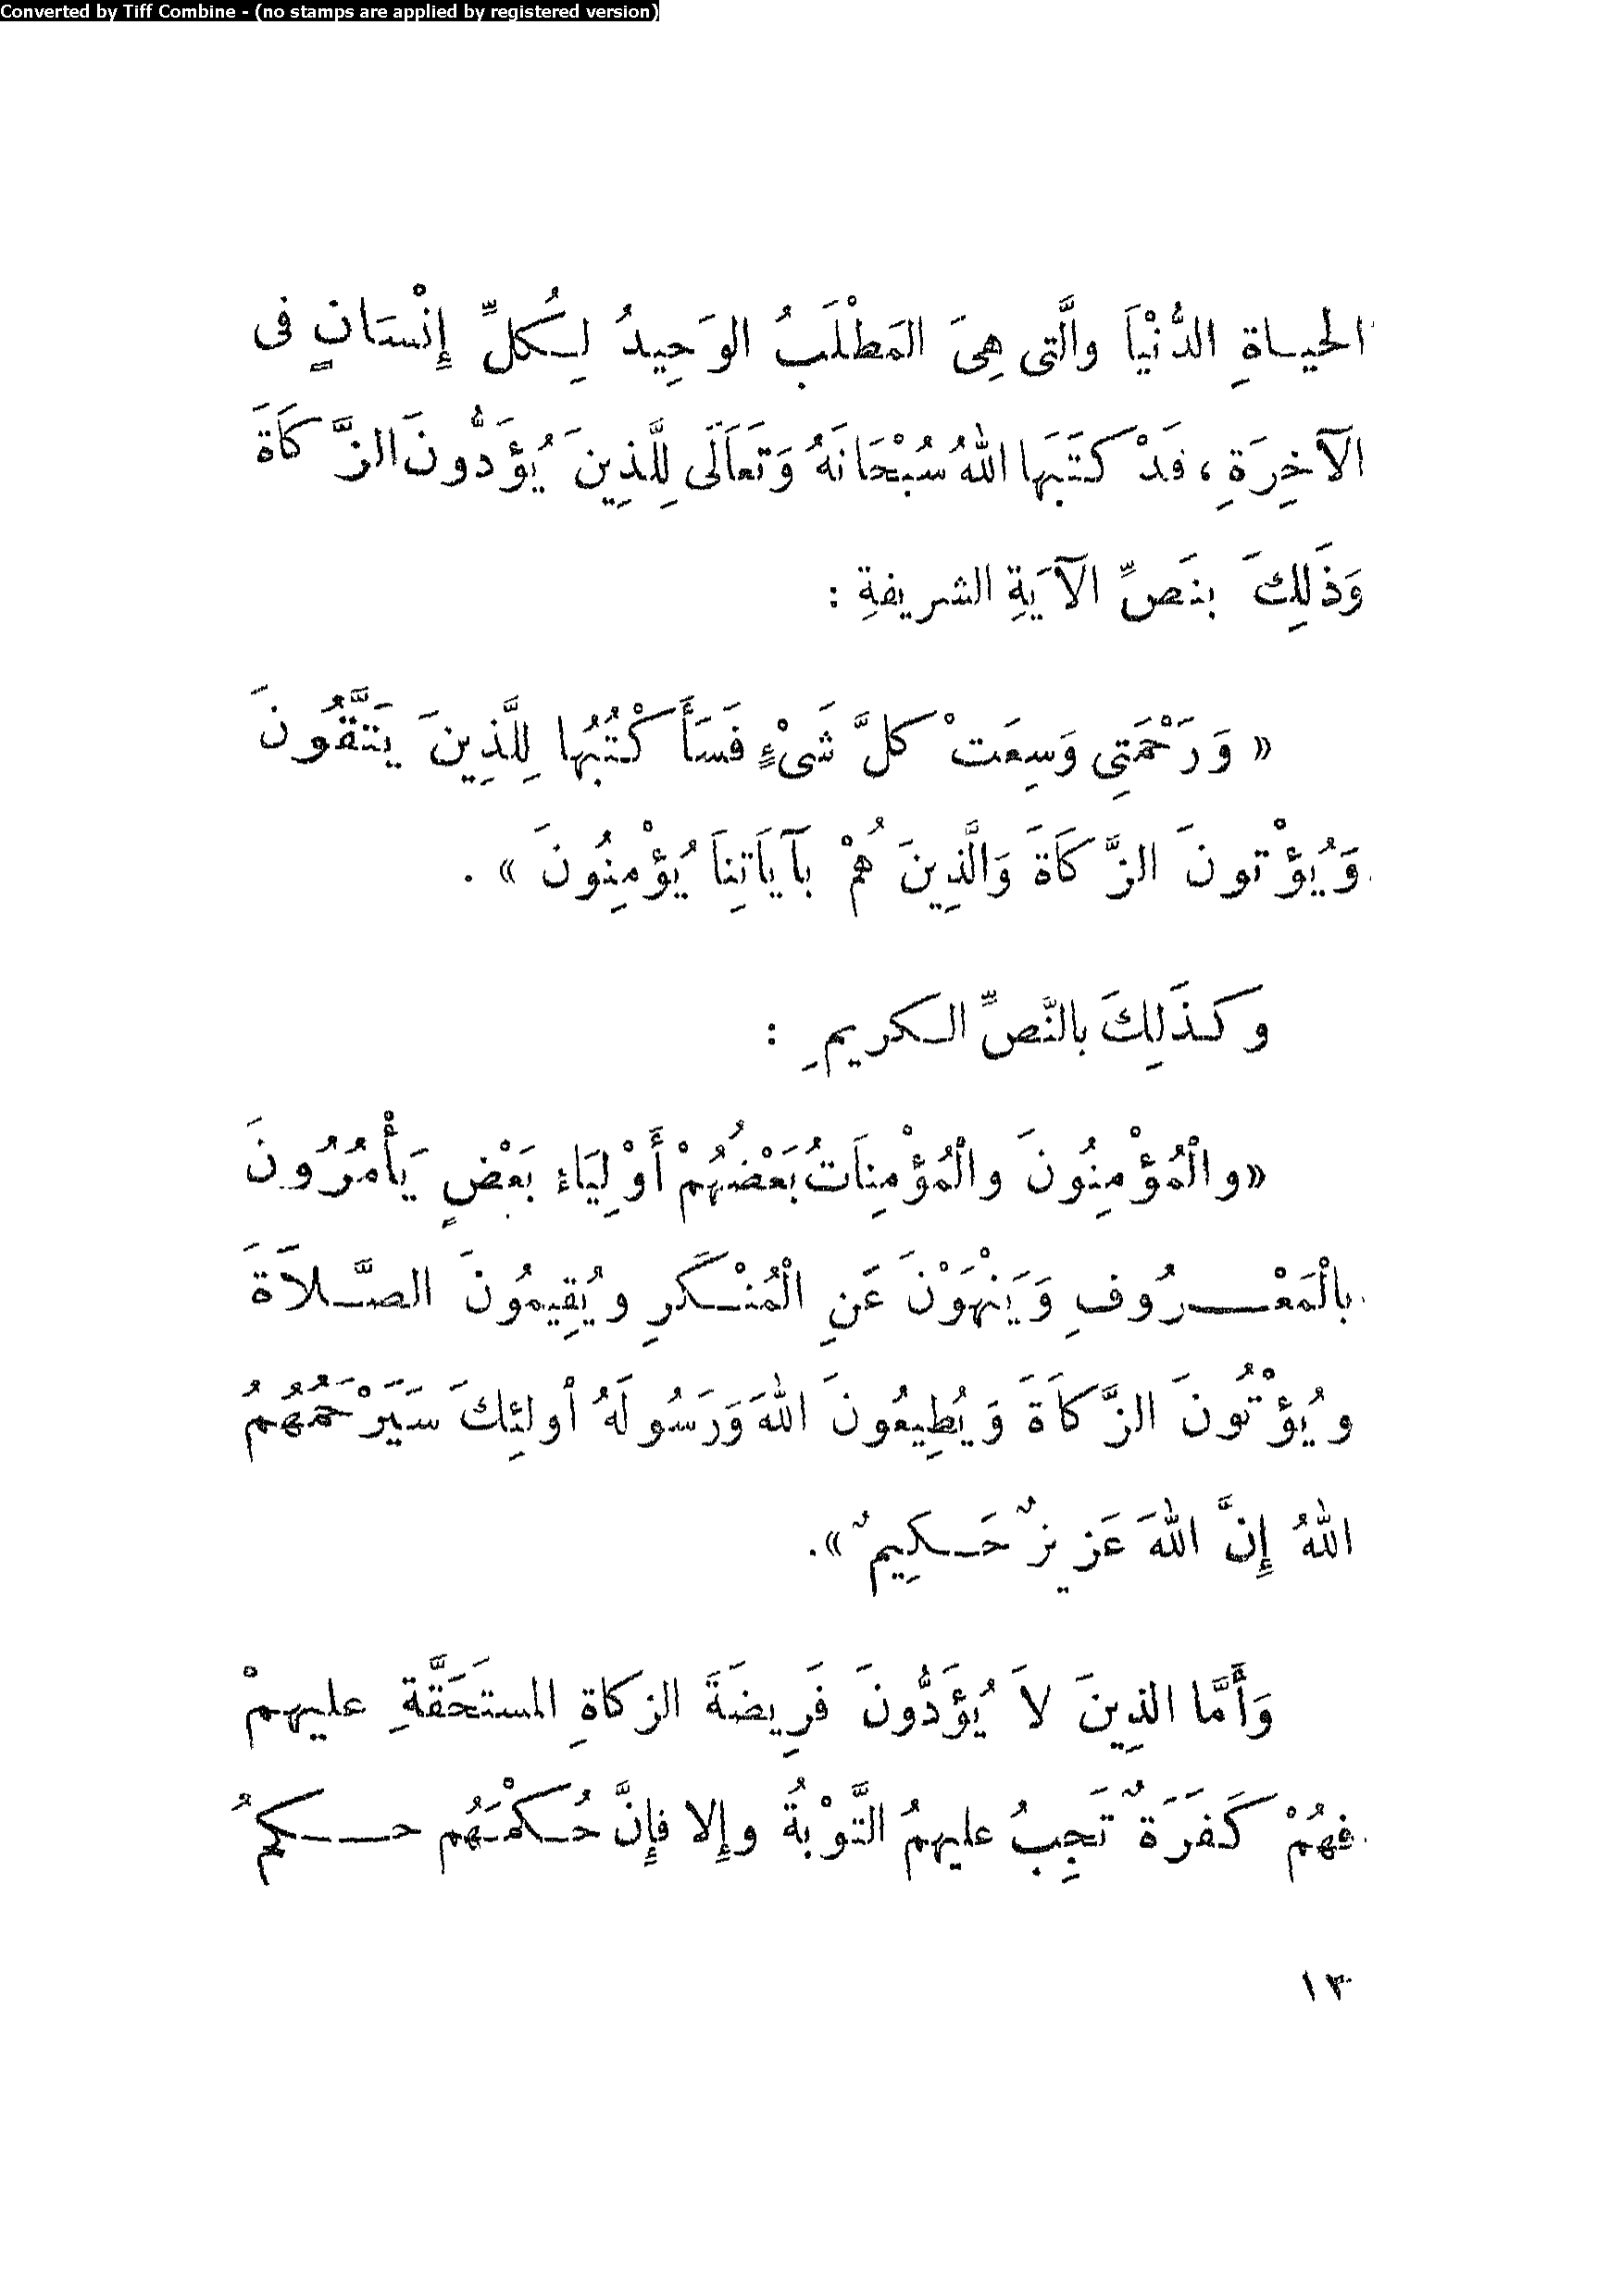 Converted by Tiff Combine - (no stamps are applied by registered version)
الحيـاةِ الدُّنْيَا والَّتى هِىَ المَطْلَبُ الوَحِيدُ لِـكُلِّ إِنْسَانٍ فى
الآخِرَةِ، فَدْ كَتَبَها اللهُ سُبْحَانَهُ وَتَعَالَى لِلَّذِينَ يُؤَدُّونَ الزَّكَاةَ
وَذَلِكَ بنَصِّ الآيَةِ الشريفةِ :
« وَرَحْمَتِى وَسِعَتْ كلَّ شَىْءٍ فَسَأَكْتُبُها لِلَّذِينَ يَتَّقُونَ
وَيُؤْتونَ الزَّكَاةَ وَالَّذِينَ هُمْ بآيَاتِنَا يُؤْمِنُونَ » .
وكذَلِكَ بالنَّصِّ الـكريمِ :
«والْمُؤْمِنُونَ والْمُؤْمِنَاتُ بَعْضُهُمْ أَوْلِيَاء بَعْضٍ يَأْمُرُونَ
بالْمَعْـرُوفِ وَيَنْهَوْنَ عَنِ الْمُنْـكَرِ ويُقِيمُونَ الصَّـلَاةَ
ويُؤْتُونَ الزَّكَاةَ وَيُطِيعُونَ اللهَ وَرَسُولَهُ أولئِكَ سَيَرْحَمُهُمُ
اللهُ إِنَّ اللهَ عَزِيزٌ حَـكِيمٌ».
وَأَمَّا الذِينَ لاَ يُؤَدُّونَ فَرِيضَةَ الزكاةِ المستَحَقَّةِ عليهمْ
فهُمْ كَفَرَةٌ تَجِبُ عليهمُ التَّوْبَةُ وإِلا فإِنَّ حُـكْمَهُم حـكمُ
١٣